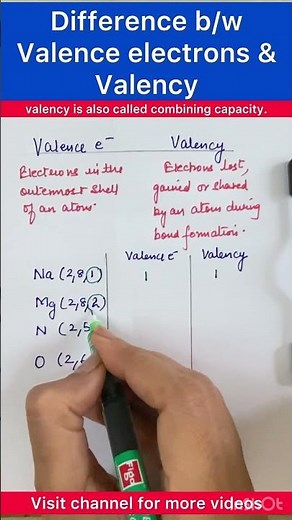 Difference b/w
Valence electrons &
Valency
valency is also called combining capacity.
Valence e⁻
Valency
Electrons in the
outermost shell
of an atom.
Electrons lost,
gained or shared
by an atom during
bond formation.
Valence e⁻
Valency
Na (2,8,1)
1
1
Mg (2,8,2)
N (2,5
O (2,6
Visit channel for more videos